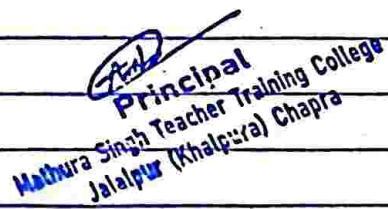 Principal
Mathura Singh Teacher Training College
Jalalpur (Khalpura) Chapra